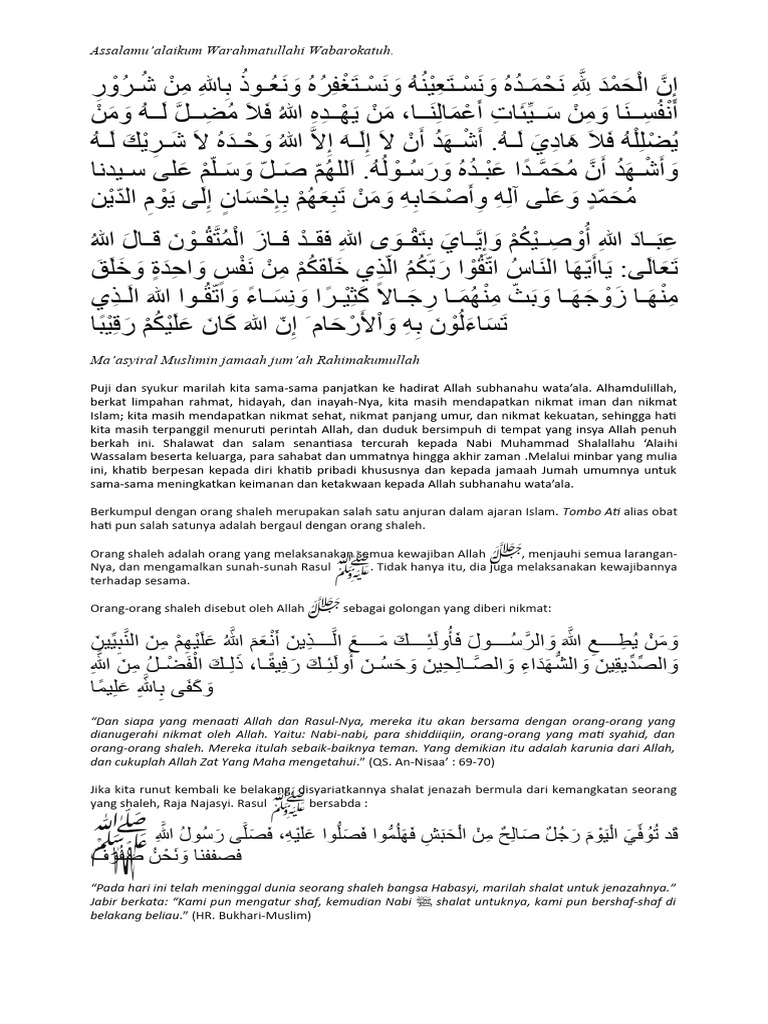 Assalamu'alaikum Warahmatullahi Wabarokatuh.
إِنَّ الْحَمْدَ لِلَّهِ نَحْمَدُهُ وَنَسْتَعِيْنُهُ وَنَسْتَغْفِرُهُ وَنَعُوذُ بِاللهِ مِنْ شُرُوْرِ
أَنْفُسِنَا وَمِنْ سَيِّئَاتِ أَعْمَالِنَا، مَنْ يَهْدِهِ اللهُ فَلاَ مُضِلَّ لَهُ وَمَنْ
يُضْلِلْهُ فَلاَ هَادِيَ لَهُ. أَشْهَدُ أَنْ لاَ إِلَه إِلاَّ اللهُ وَحْدَهُ لاَ شَرِيْكَ لَهُ
وَأَشْهَدُ أَنَّ مُحَمَّدًا عَبْدُهُ وَرَسُوْلُهُ. اَللهُمّ صَلّ وَسَلّمْ عَلى سيدنا
مُحَمّدٍ وَعَلى آلِهِ وِأَصْحَابِهِ وَمَنْ تَبِعَهُمْ بِإِحْسَانٍ إِلَى يَوْمِ الدّيْن
عِبَادَ اللهِ أُوْصِيْكُمْ وَإِيَّايَ بِتَقْوَى اللهِ فَقَدْ فَازَ الْمُتَّقُوْنَ قَالَ اللهُ
تَعَالَى: يَاأَيّهَا النَاسُ اتّقُوْا رَبّكُمُ الّذِي خَلَقَكُمْ مِنْ نَفْسٍ وَاحِدَةٍ وَخَلَقَ
مِنْهَا زَوْجَهَا وَبَثّ مِنْهُمَا رِجَالاً كَثِيْرًا وَنِسَاءً وَاتّقُوا اللهَ الَذِي
تَسَاءَلُوْنَ بِهِ وَاْلأَرْحَام َ إِنّ اللهَ كَانَ عَلَيْكُمْ رَقِيْبًا
Ma'asyiral Muslimin jamaah jum'ah Rahimakumullah
Puji dan syukur marilah kita sama-sama panjatkan ke hadirat Allah subhanahu wata'ala. Alhamdulillah,
berkat limpahan rahmat, hidayah, dan inayah-Nya, kita masih mendapatkan nikmat iman dan nikmat
Islam; kita masih mendapatkan nikmat sehat, nikmat panjang umur, dan nikmat kekuatan, sehingga hati
kita masih terpanggil menuruti perintah Allah, dan duduk bersimpuh di tempat yang insya Allah penuh
berkah ini. Shalawat dan salam senantiasa tercurah kepada Nabi Muhammad Shalallahu 'Alaihi
Wassalam beserta keluarga, para sahabat dan ummatnya hingga akhir zaman .Melalui minbar yang mulia
ini, khatib berpesan kepada diri khatib pribadi khususnya dan kepada jamaah Jumah umumnya untuk
sama-sama meningkatkan keimanan dan ketakwaan kepada Allah subhanahu wata'ala.
Berkumpul dengan orang shaleh merupakan salah satu anjuran dalam ajaran Islam. Tombo Ati alias obat
hati pun salah satunya adalah bergaul dengan orang shaleh.
Orang shaleh adalah orang yang melaksanakan semua kewajiban Allah ﷻ, menjauhi semua larangan-
Nya, dan mengamalkan sunah-sunah Rasul ﷺ. Tidak hanya itu, dia juga melaksanakan kewajibannya
terhadap sesama.
Orang-orang shaleh disebut oleh Allah ﷻ sebagai golongan yang diberi nikmat:
وَمَنْ يُطِعِ اللَّهَ وَالرَّسُولَ فَأُولَئِكَ مَعَ الَّذِينَ أَنْعَمَ اللَّهُ عَلَيْهِمْ مِنَ النَّبِيِّينَ
وَالصِّدِّيقِينَ وَالشُّهَدَاءِ وَالصَّالِحِينَ وَحَسُنَ أُولَئِكَ رَفِيقًا، ذَلِكَ الْفَضْلُ مِنَ اللَّهِ
وَكَفَى بِاللَّهِ عَلِيمًا
“Dan siapa yang menaati Allah dan Rasul-Nya, mereka itu akan bersama dengan orang-orang yang
dianugerahi nikmat oleh Allah. Yaitu: Nabi-nabi, para shiddiiqiin, orang-orang yang mati syahid, dan
orang-orang shaleh. Mereka itulah sebaik-baiknya teman. Yang demikian itu adalah karunia dari Allah,
dan cukuplah Allah Zat Yang Maha mengetahui.” (QS. An-Nisaa' : 69-70)
Jika kita runut kembali ke belakang, disyariatkannya shalat jenazah bermula dari kemangkatan seorang
yang shaleh, Raja Najasyi. Rasul ﷺ bersabda :
قَد تُوُفِّيَ الْيَوْمَ رَجُلٌ صَالِحٌ مِنْ الْحَبَشِ فَهَلُمُوا فَصَلُّوا عَلَيْهِ، فَصَلَّى رَسُولُ اللَّهِ ﷺ
فصففنا وَنَحْنُ صُفُوُفٌ
“Pada hari ini telah meninggal dunia seorang shaleh bangsa Habasyi, marilah shalat untuk jenazahnya.”
Jabir berkata: “Kami pun mengatur shaf, kemudian Nabi ﷺ shalat untuknya, kami pun bershaf-shaf di
belakang beliau.” (HR. Bukhari-Muslim)